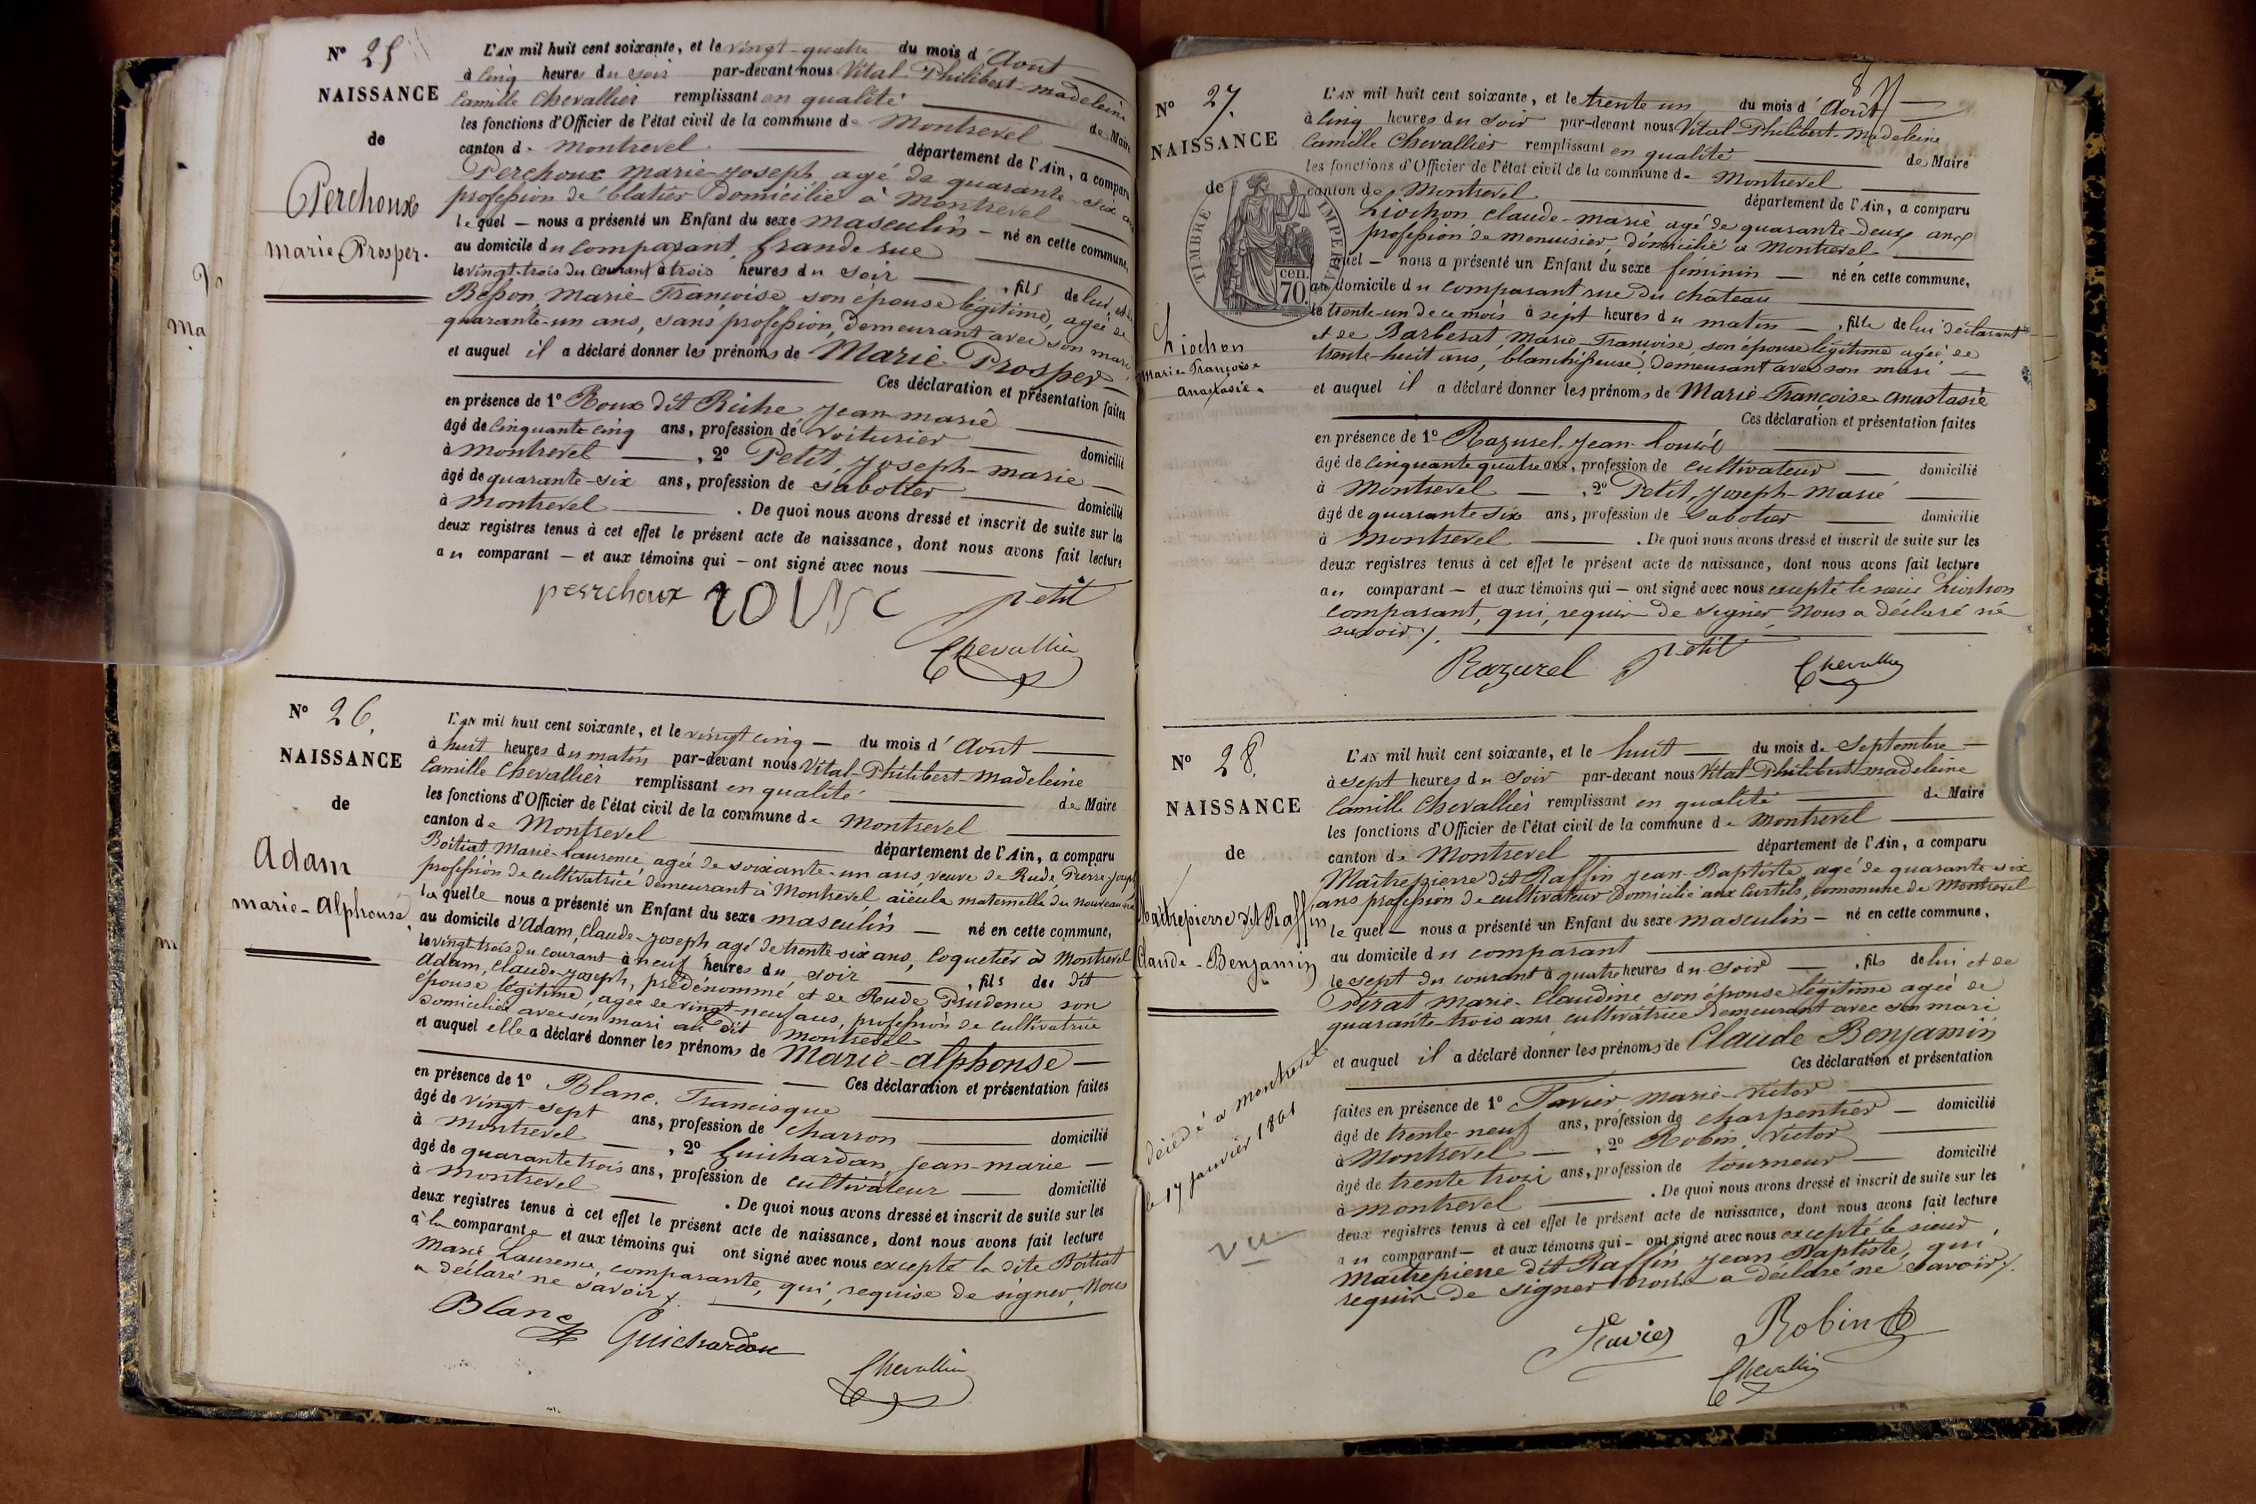 N° 25
NAISSANCE
de
Perchoux
Marie-Prosper.
L'AN mil huit cent soixante, et le vingt-quatre du mois d'Aout
à cinq heures du soir par-devant nous Vital-Philibert-Madeleine
Camille Chevallier remplissant en qualité de Maire
les fonctions d'Officier de l'état civil de la commune de Montrevel
canton de Montrevel département de l'Ain, a comparu
Perchoux Marie-Joseph agé de quarante-six ans
profession de blatier domicilié à Montrevel
lequel nous a présenté un Enfant du sexe masculin né en cette commune,
au domicile du comparant, Grande rue
le vingt-trois du courant à trois heures du soir, fils de lui, et de
Besson, Marie-Françoise son épouse légitime, agée de
quarante-un ans, sans profession, demeurant avec son mari,
et auquel il a déclaré donner les prénoms de Marie-Prosper
Ces déclaration et présentation faites
en présence de 1° Roux dit Riche Jean-Marie
âgé de cinquante cinq ans, profession de voiturier domicilié
à Montrevel, 2° Petit, Joseph-Marie
âgé de quarante-six ans, profession de sabotier domicilié
à Montrevel. De quoi nous avons dressé et inscrit de suite sur les
deux registres tenus à cet effet le présent acte de naissance, dont nous avons fait lecture
au comparant et aux témoins qui ont signé avec nous
perrchoux rouse petit
Chevallier
N° 26.
NAISSANCE
de
Adam
Marie-Alphonse
L'AN mil huit cent soixante, et le vingt cinq du mois d'Aout
à huit heures du matin par-devant nous Vital-Philibert-Madeleine
Camille Chevallier remplissant en qualité de Maire
les fonctions d'Officier de l'état civil de la commune de Montrevel
canton de Montrevel département de l'Ain, a comparu
Boitiat Marie-Laurence agée de soixante-un ans, veuve de Rude, Pierre-Joseph
profession de cultivatrice demeurant à Montrevel aïeule maternelle du nouveau né
laquelle nous a présenté un Enfant du sexe masculin né en cette commune,
au domicile d'Adam, Claude-Joseph agé de trente-six ans, coquetier à Montrevel
le vingt-trois du courant à neuf heures du soir, fils du dit
Adam, Claude-Joseph, prédénommé et de Rude Prudence son
épouse légitime, agée de vingt-neuf ans, profession de cultivatrice
domiciliée avec son mari au dit Montrevel
et auquel elle a déclaré donner les prénoms de Marie-Alphonse
Ces déclaration et présentation faites
en présence de 1° Blanc, Francisque
âgé de vingt-sept ans, profession de charron domicilié
à Montrevel, 2° Guichardan, Jean-Marie
âgé de quarante trois ans, profession de cultivateur domicilié
à Montrevel. De quoi nous avons dressé et inscrit de suite sur les
deux registres tenus à cet effet le présent acte de naissance, dont nous avons fait lecture
à la comparante et aux témoins qui ont signé avec nous excepté la dite Boitiat
Marie Laurence, comparante, qui, requise de signer, Nous
a déclaré ne savoir
Blanc Guichardan
Chevallier
N° 27.
NAISSANCE
de
TIMBRE IMPERIAL
70 cen.
Liochon
Marie-Françoise
Anastasie.
L'AN mil huit cent soixante, et le trente un du mois d'Août
à cinq heures du soir par-devant nous Vital-Philibert-Madeleine
Camille Chevallier remplissant en qualité de Maire
les fonctions d'Officier de l'état civil de la commune de Montrevel
canton de Montrevel département de l'Ain, a comparu
Liochon Claude-Marie agé de quarante-deux ans
profession de menuisier, domicilié à Montrevel
lequel nous a présenté un Enfant du sexe féminin né en cette commune,
au domicile du comparant rue du château
le trente-un de ce mois à sept heures du matin, fille de lui déclarant
et de Barberat, Marie-Françoise, son épouse légitime agée de
trente-huit ans, blanchisseuse, demeurant avec son mari
et auquel il a déclaré donner les prénoms de Marie-Françoise-Anastasie
Ces déclaration et présentation faites
en présence de 1° Razurel, Jean-Louis
âgé de cinquante quatre ans, profession de cultivateur domicilié
à Montrevel, 2° Petit, Joseph-Marie
âgé de quarante six ans, profession de sabotier domicilié
à Montrevel. De quoi nous avons dressé et inscrit de suite sur les
deux registres tenus à cet effet le présent acte de naissance, dont nous avons fait lecture
au comparant et aux témoins qui ont signé avec nous excepté le sieur Liochon
comparant, qui, requis de signer, Nous a déclaré ne
savoir
Razurel petit Chevallier
N° 28.
NAISSANCE
de
Maitrepierre dit Raffin
Claude-Benjamin
décédé a montrevel
le 17 janvier 1861
vu
L'AN mil huit cent soixante, et le huit du mois de Septembre
à sept heures du soir par-devant nous Vital-Philibert-Madeleine
Camille Chevallier remplissant en qualité de Maire
les fonctions d'Officier de l'état civil de la commune de Montrevel
canton de Montrevel département de l'Ain, a comparu
Maitrepierre dit Raffin Jean-Baptiste, agé de quarante-six
ans profession de cultivateur domicilié aux Curtils, commune de Montrevel
lequel nous a présenté un Enfant du sexe masculin né en cette commune,
au domicile du comparant
le sept du courant à quatre heures du soir, fils de lui et de
Pérat Marie-Claudine son épouse légitime agée de
quarante-trois ans cultivatrice demeurant avec son mari
et auquel il a déclaré donner les prénoms de Claude Benjamin
Ces déclaration et présentation
faites en présence de 1° Favier Marie-Victor
âgé de trente-neuf ans, profession de charpentier domicilié
à Montrevel, 2° Robin, Victor
âgé de trente trois ans, profession de tourneur domicilié
à Montrevel. De quoi nous avons dressé et inscrit de suite sur les
deux registres tenus à cet effet le présent acte de naissance, dont nous avons fait lecture
au comparant et aux témoins qui ont signé avec nous excepté le sieur
Maitrepierre dit Raffin Jean Baptiste, qui,
requis de signer Nous a déclaré ne savoir
Favier Robin
Chevallier